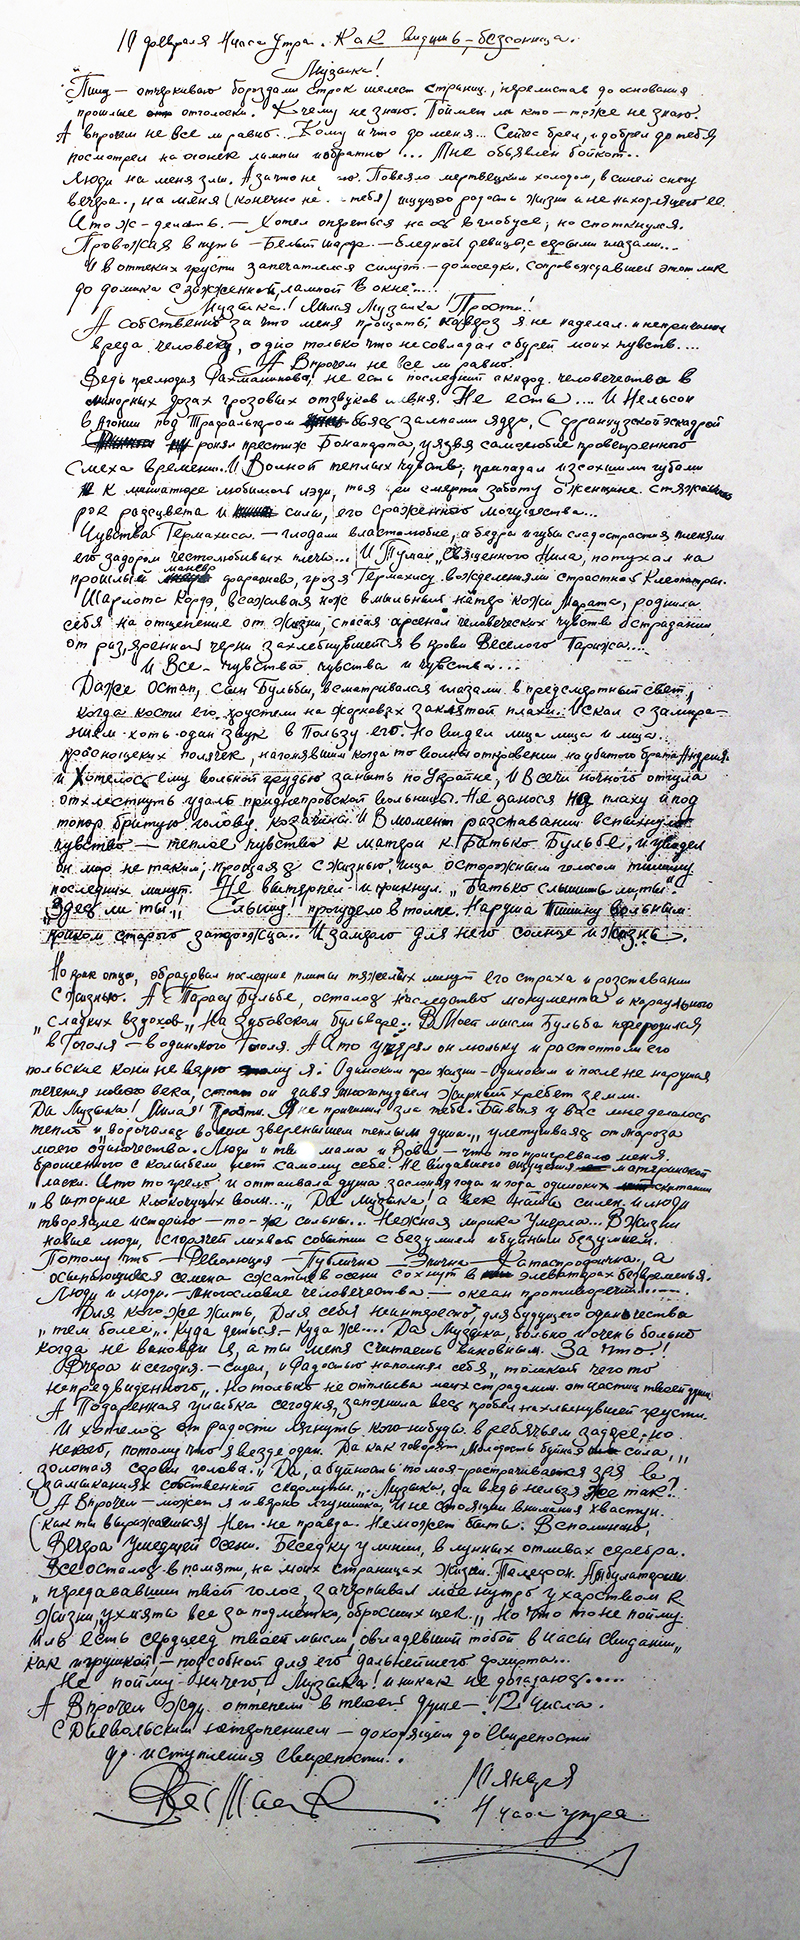 10 февраля 4 часа утра. Как видишь, – безсонница.
Музыка!
Пишу – отчеркиваю бороздами строк шелест страниц., перелистав до основания
прошлые отголоски. К чему не знаю. Поймет ли кто – тоже не знаю.
А впрочем не все ли равно... Кому и что до меня... Сейчас брел, и добрел до тебя
посмотрел на огонек лампы и обратно... Мне объявлен бойкот..
Люди на меня злы. А за что не го. Повеяло мертвецким холодом, в синем снегу
вечера., на меня (конечно не тебя) ищущего радость жизни и не находящего ее.
И что ж – делать. – Хотел опереться на в глобусе; но споткнулся.
Провожая в путь – Белый шарф. – бледной девицы, с серыми глазами...
И в оттеках грусти запечатлелся силуэт – домоседки. сопровождавшей этот лик
до домика с зажженной, лампой в окне...!
Музыка! Милая Музыка! Прости.!
А собственно за что меня прощать; я не наделал. и не причинил
вреда. человеку, одно только что не совладал с бурей моих чувств....
А Впрочем не все ли равно.
Ведь прелюдия Рахманинова, не есть последний аккорд. человечества в
минорных дозах грозовых отзвуков ливня. Не есть.... И Нельсон
в Агонии под Трафальгаром бьясь залпами ядер, с французской эскадрой
ронял престиж Бонапарта, уязвя самолюбие проветренного
смеха времени.. И Волной теплых чувств, припадал изсохшими губами
к миниатюре любимой леди, тая при смерти заботу о женщине.
рок разцвета и силы, его сраженного могущества...
Чувства Гермахиса. – глодали властолюбие, а бедра и губы сладострастия пленяли
его задором честолюбивых плечь... И Туман „Священного Нила, потухал на
прошлый маневр фараонов, грозя Гермахису вожделениями страстной Клеопатры.
Шарлота Кордэ, всаживая нож в мыльный натёр кожи Марата, роднила
себя на отщепение от жизни, спасая арсенал человеческих чувств в страдании
от разъяренной черни захлебнувшейся в крови Веселого Парижа...
И Все – чувства чувства и чувства...
Даже Остап, сын Бульбы, всматривался глазами в предсмертный свет,
когда кости его хрустели на жерновах заклятой плахи. Искал с замира-
нием хоть один звук в Пользу его. Но видел лица лица и лица.
краснощеких полячек, нагонявшим когда то волны откровений на убитого брата Андрея.
и Хотелось ему вольной грудью запеть по Украйне, И в Сечи ночного отгула
отхлестнуть удаль приднепровской вольницы. Не занося на плаху и под
топор бритую голову. козачины. И В момент разставаний вспыхнуло
чувство – теплое чувство к матери к Батько Бульбе, и увидел
он мир не таким; прощаяся с жизнью. ища осторожным голосом тишину
последних минут. Не вытерпел и крикнул. „Батько слышишь ли ты."
„Здесь ли ты„ Слышу! прогудело в толпе. Наруша тишину вольным
криком старого запорожца.. И замерло для него солнце и жизнь.
Но крик отца, образовал последние плиты тяжелых минут его страха и розставаний
с жизнью. А с Тарасу Бульбе, осталось наследство монумента и караульного
„сладких вздохов„ На Зубовском бульваре.. В моей мысли Бульба переродился,
в Гоголя – в одинокого Гоголя. А что утерял он люльку и растоптали его
польские кони не верю я. Одиноким при жизни – одиноким и после не нарушая,
течения нового века, он давя многопудьем жирный хребет земли.
Да Музыка! Милая! Прости. Я не причинил зла тебе. Бывая у вас мне делалось
тепло „и ворочалась во мне зверенышем теплым душа.„ улетучиваясь от мороза
моего одиночества. Люди и тво мама и Вова – что то пригревало меня.
брошенного с колыбели лет самому себе. Не видавшего ощущения материнской
ласки. И что то грело и оттаивала душа заслоня года и года одиноких скитаний
„в шторме клокочущих волн...„ Да Музыка! а век наш силен. и люди
творящие историю – то – же сильны... Нежная лирика умерла... В жизни
новые люди, с горячей лихвой событий с безумием и буйным безумием.
Потому что – Революция – Публична – Эпична – Катастрофична., а
осыпающиеся семена сжатые в осени сохнут в элеваторах безвременья.
Люди и люди. – многословие человечества – океан противоречий......
Для кого же жить, Для себя неинтересно, для будущего одиночества
„тем более„. Куда деться – куда же.... Да Музыка, больно и очень больно
когда не виновен я, а ты меня считаешь виновным. За что?!
Вчера и сегодня. – сидел, и радостью наполнял себя „толикой чего то
непредвиденного„. Но только не отплыва моих страданий. от частиц твоей души
А Подаренная улыбка сегодня, заполнила весь пробел нахлынувшей грусти.
И хотелось от радости лягнуть кого-нибудь. в ребячьем задоре; но
некого, потому что я везде один. Да как говорят „Молодость буйная сила„
золотая сорви голова.„ Да, а буйность то моя – растрачивается зря в
„замыканиях собственной скорлупы„. Музыка, да ведь нельзя же так!.
А Впрочем – может я и верно лгунишка, и не стоящий внимания хвастун.
(как ты выражаешься) Нет. не правда. Не может быть. Вспоминаю,
Вечера ушедшей осени. Беседку у липы, в лунных отливах серебра.
Все осталось в памяти, на моих страницах жизни. Телефон. Амбулатории
„передававший твой голос, зачерпывал мое нутро ухарством к
жизни, „ухмыла все за подметки, обросших щек.„ Но что то не пойму
Иль есть сердцеед твоей мысли, овладевший тобой в часы свиданий„
как игрушкой, – подсобной для его дальнейшего домирта...
Не пойму. ничего, Музыка! и никак не догадаюсь.....
А Впрочем Жду. оттепели в твоей душе – 12 числа.
С Дьявольским нетерпением – доходящим до Свирепости
до иступления Свирепости..
10 января
4 часа утра